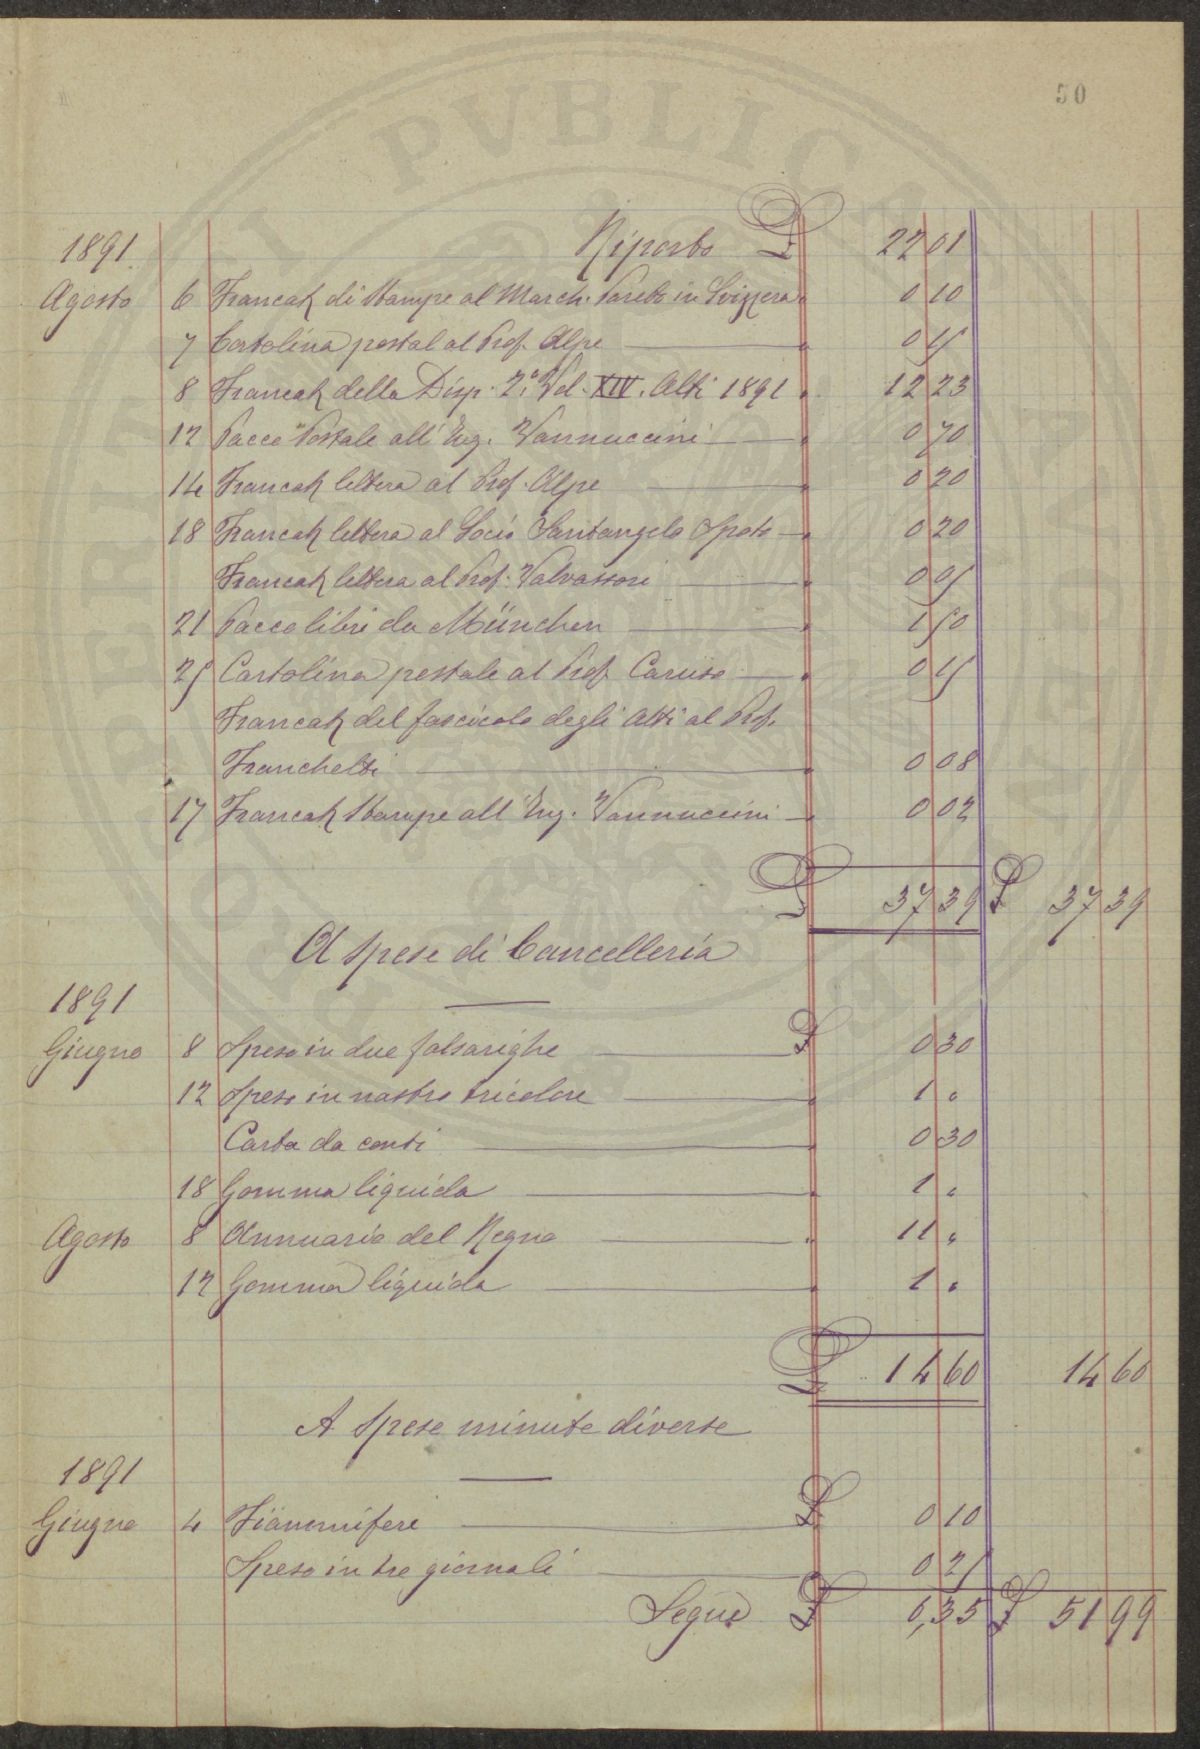 50
PVBLICA
1891 Riporto £ 22 01
Agosto 6 Francat. di Stampe al March. Pareto in Svizzera 0 10
7 Cartolina postal al Prof. Alpe 0 15
8 Francat. della Disp. 2ª Vol. XIV. Atti 1891 12 23
12 Pacco Postale all' Ing. Vannuccini 0 70
14 Francat. lettera al Prof. Alpe 0 20
18 Francat. lettera al Socio Santangelo Spoto 0 20
Francat. lettera al Prof. Valvassori 0 05
21 Pacco libri da München 1 50
25 Cartolina postale al Prof. Caruso 0 15
Francat. del fascicolo degli Atti al Prof.
Franchetti 0 08
17 Francat. Stampe all' Ing. Vannuccini 0 02
£ 37 39 £ 37 39
A spese di Cancelleria
1891
Giugno 8 Speso in due falsarighe £ 0 30
12 Speso in nastro tricolore 1 "
Carta da conti 0 30
18 Gomma liquida 1 "
Agosto 8 Annuario del Regno 11 "
12 Gomma liquida 1 "
£ 14 60 14 60
A spese minute diverse
1891
Giugno 4 Fiammiferi £ 0 10
Speso in tre giornali 0 25
Segue £ 0,35 £ 51 99